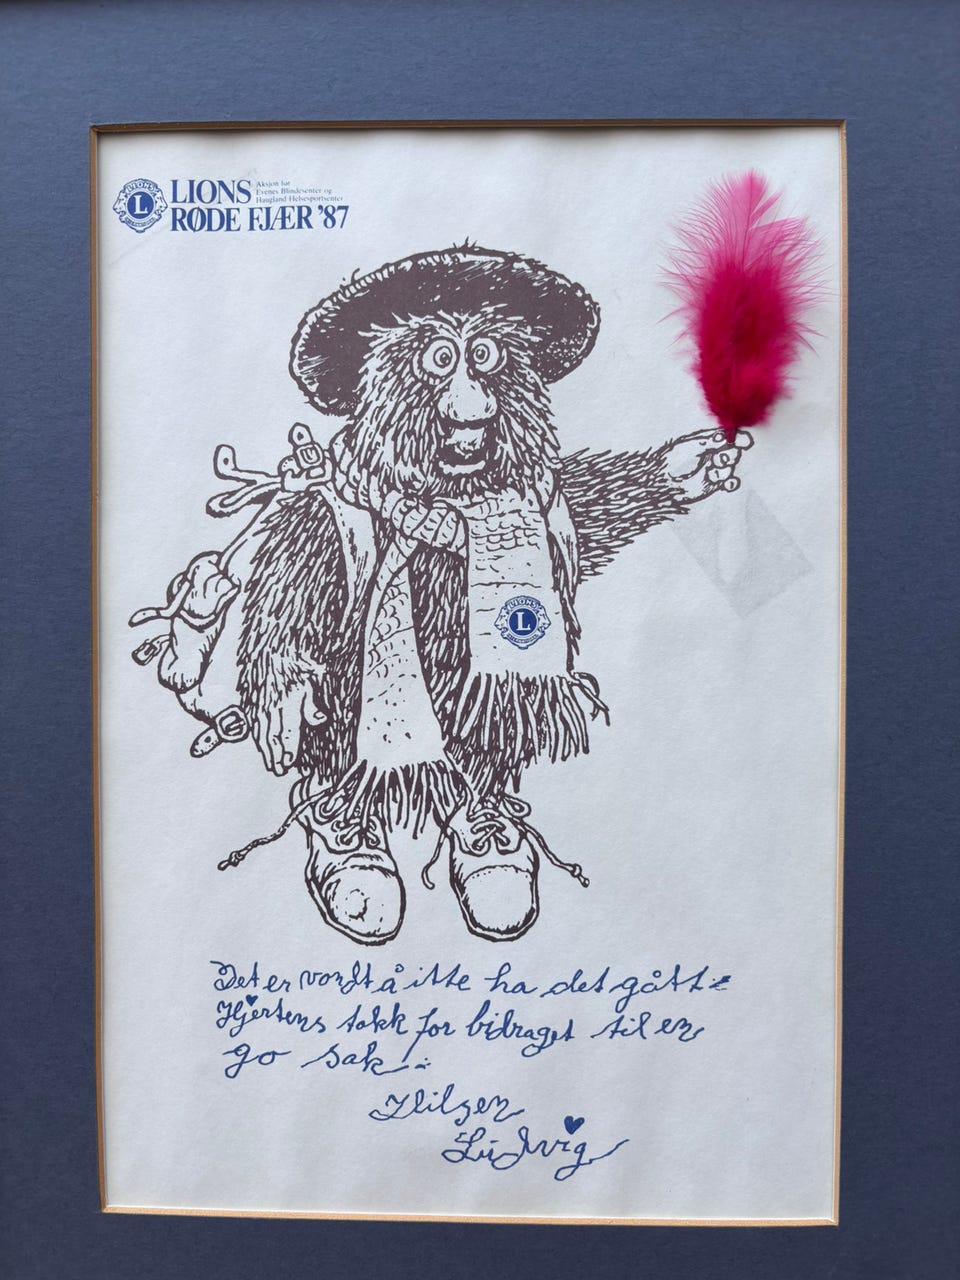 LIONS
L
INTERNATIONAL
LIONS
RØDE FJÆR '87
Aksjon for
Evenes Blindesenter og
Haugland Helsesportsenter
LIONS
L
INTERNATIONAL
Det er vondt å itte ha det gått
Hjertens takk for bidraget til en
go sak
Hilsen
Ludvig